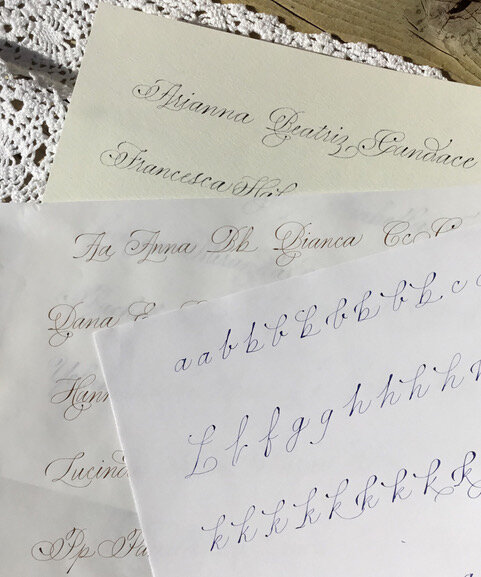 Arianna Beatriz Candace
Francesca
Aa Anna Bb Bianca Cc C
Dana E
Hann
Lucind
Pp Pa
a a b b b b b b b c
f f g g h h h h h
k k k k k k k k